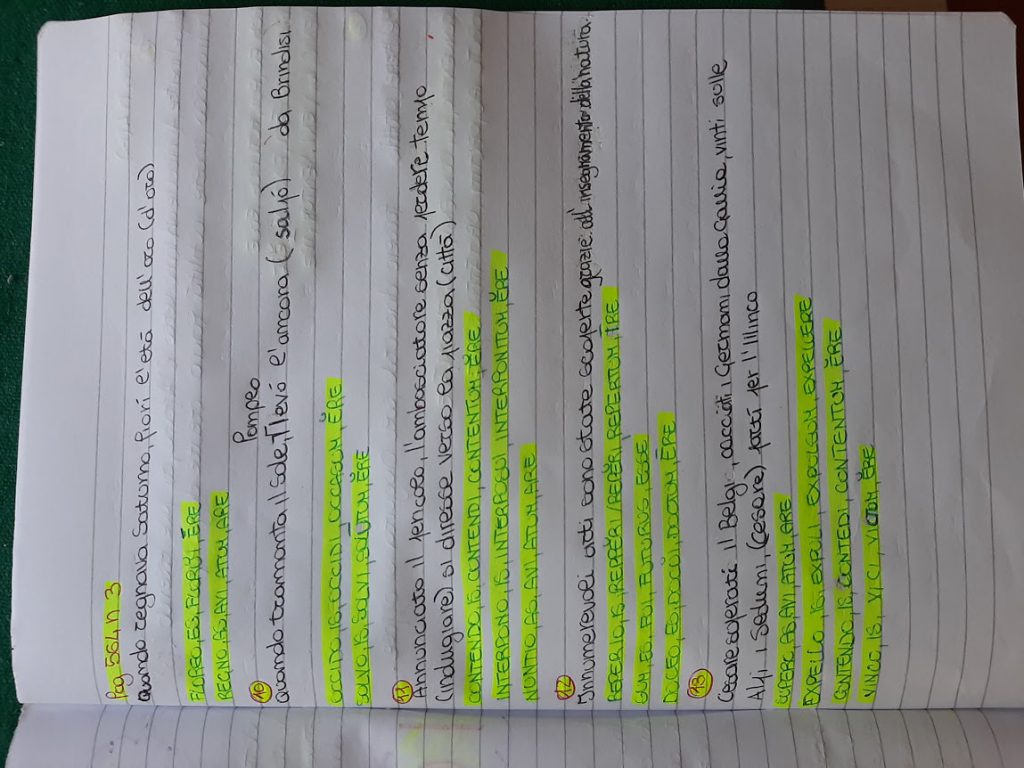 Pag 564 n 3
Quando regnava Saturno, fiorì l'età dell'oro (d'oro)
FLOREO, ES, FLORUI, ĒRE
REGNO, AS, AVI, ATUM, ARE
Pompeo
10 Quando tramonta il sole, levò l'ancora (salpò) da Brindisi
OCCIDO, IS, OCCIDI, OCCASUM, ĔRE
SOLVO, IS, SOLVI, SOLUTUM, ĔRE
11 Annunciato il pericolo, l'ambasciatore senza perdere tempo
(indugiare) si diresse verso la piazza (città)
CONTENDO, IS, CONTENDI, CONTENTUM, ĔRE
INTERPONO, IS, INTERPOSUI, INTERPONTUM, ĔRE
NUNTIO, AS, AVI, ATUM, ARE
12 Innumerevoli arti sono state scoperte grazie all'insegnamento della natura.
REPERIO, IS, REPPERI/REPERI, REPERTUM, ĪRE
SUM, ES, FUI, FUTURUS, ESSE
DOCEO, ES, DOCUI, DOCTUM, ĒRE
13
Cesare superati il Belgi, cacciati i Germani dalla Gallia, vinti sulle
Alpi i Seduni, (Cesare) partì per l'Illirico
SUPERO, AS, AVI, ATUM, ARE
EXPELLO, IS, EXPULI, EXPULSUM, EXPELLERE
CONTENDO, IS, CONTEDI, CONTENTUM, ĔRE
VINCO, IS, VICI, VICTUM, ĔRE